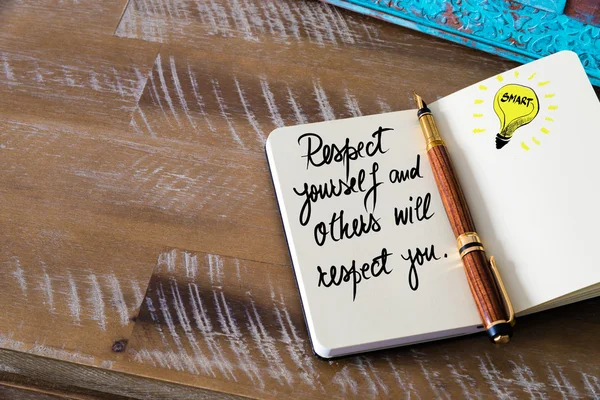 Respect
yourself and
others will
respect you.
SMART